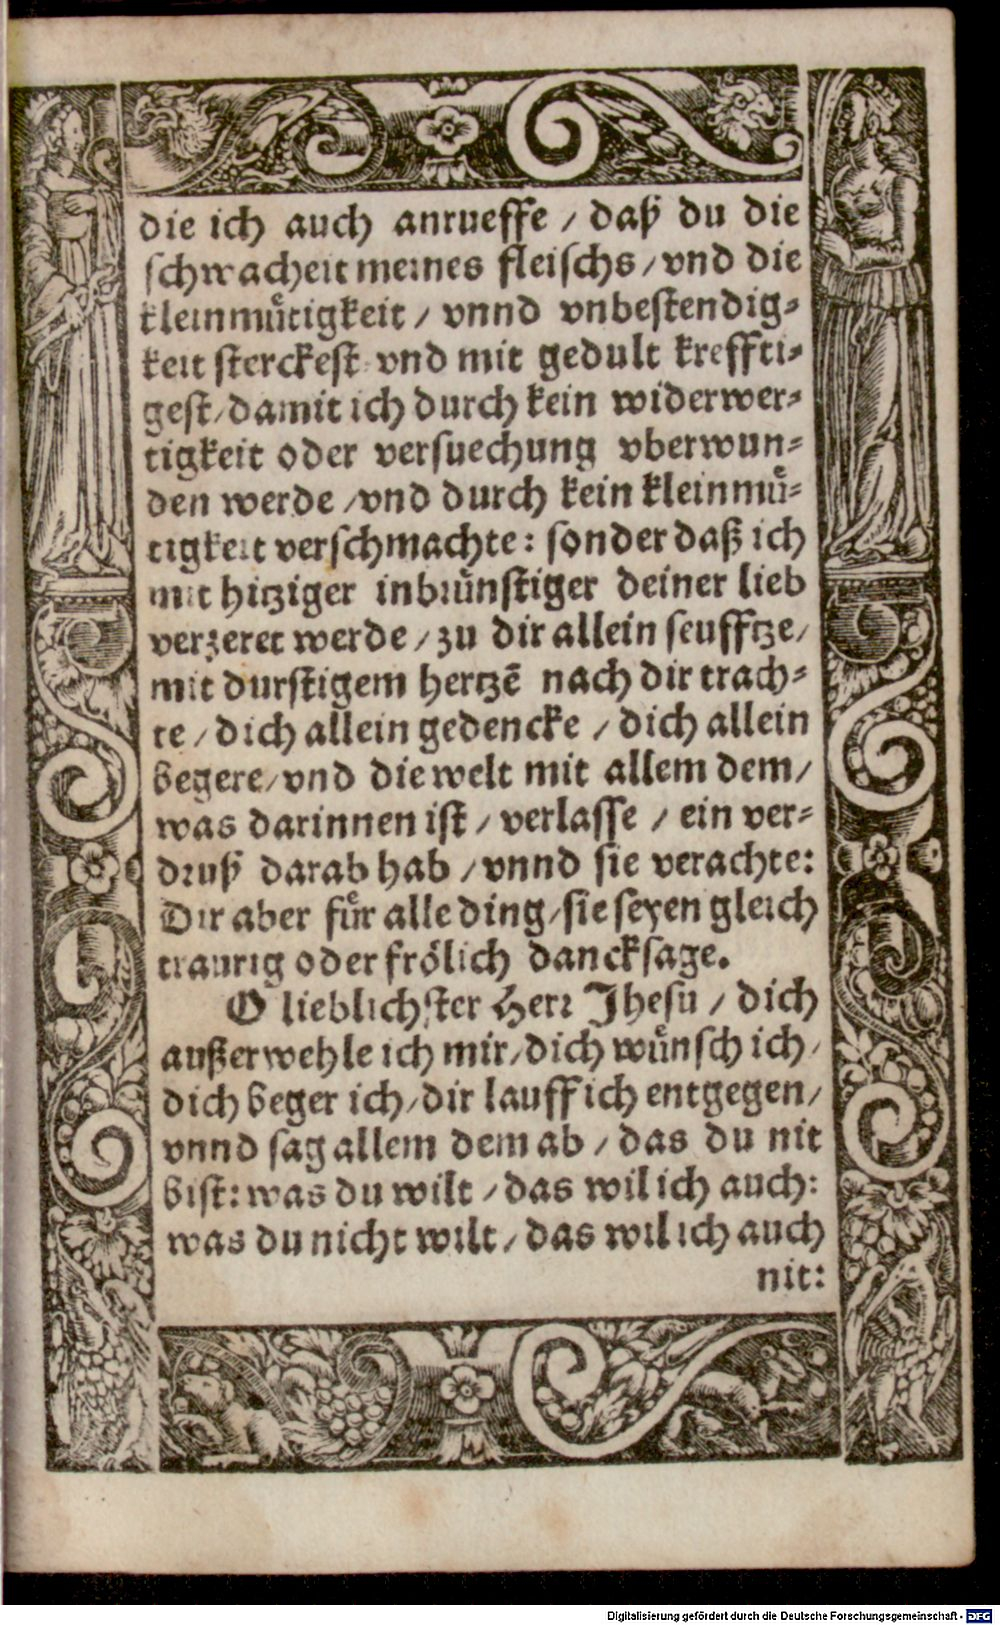 die ich auch anrueffe / daß du die
schwacheit meines fleischs / vnd die
kleinmuͤtigkeit / vnnd vnbestendig-
keit sterckest vnd mit gedult kreffti-
gest / damit ich durch kein widerwer-
tigkeit oder versuechung vberwun-
den werde / vnd durch kein kleinmuͤ-
tigkeit verschmachte: sonder daß ich
mit hitziger inbruͤnstiger deiner lieb
verzeret werde / zu dir allein seufftze /
mit durstigem hertzẽ nach dir trach-
te / dich allein gedencke / dich allein
begere / vnd die welt mit allem dem /
was darinnen ist / verlasse / ein ver-
druß darab hab / vnnd sie verachte:
Dir aber fuͤr alle ding / sie seyen gleich
traurig oder froͤlich dancksage.
O lieblichster Herr Jhesu / dich
außerwehle ich mir / dich wuͤnsch ich /
dich beger ich / dir lauff ich entgegen /
vnnd sag allem dem ab / das du nit
bist: was du wilt / das wil ich auch:
was du nicht wilt / das wil ich auch
nit:
Digitalisierung gefördert durch die Deutsche Forschungsgemeinschaft - DFG